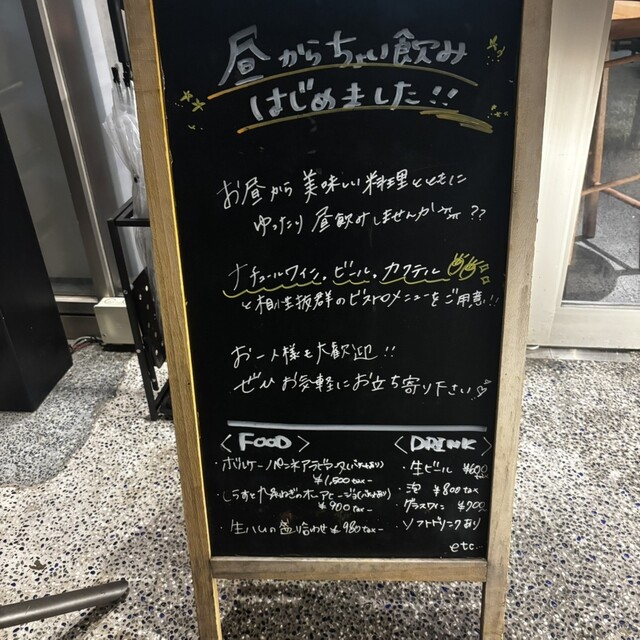 昼からちょい飲み
はじめました!!
お昼から美味しい料理とともに
ゆったり昼飲みしませんか??
ナチュールワイン。ビール。カクテル
と相性抜群のビストロメニューをご用意!!
お一人様も大歓迎!!
ぜひお気軽にお立ち寄り下さい♡
〈FOOD〉
・ボルケーノペンネアラビアータ
¥1,500tax-
・しらすと九条ねぎのホーアヒージョ
¥900tax-
・生ハムの盛り合わせ ¥980tax-
〈DRINK〉
・生ビール ¥600
・泡 ¥800tax
グラスワイン ¥900
ソフトドリンクあり
etc.